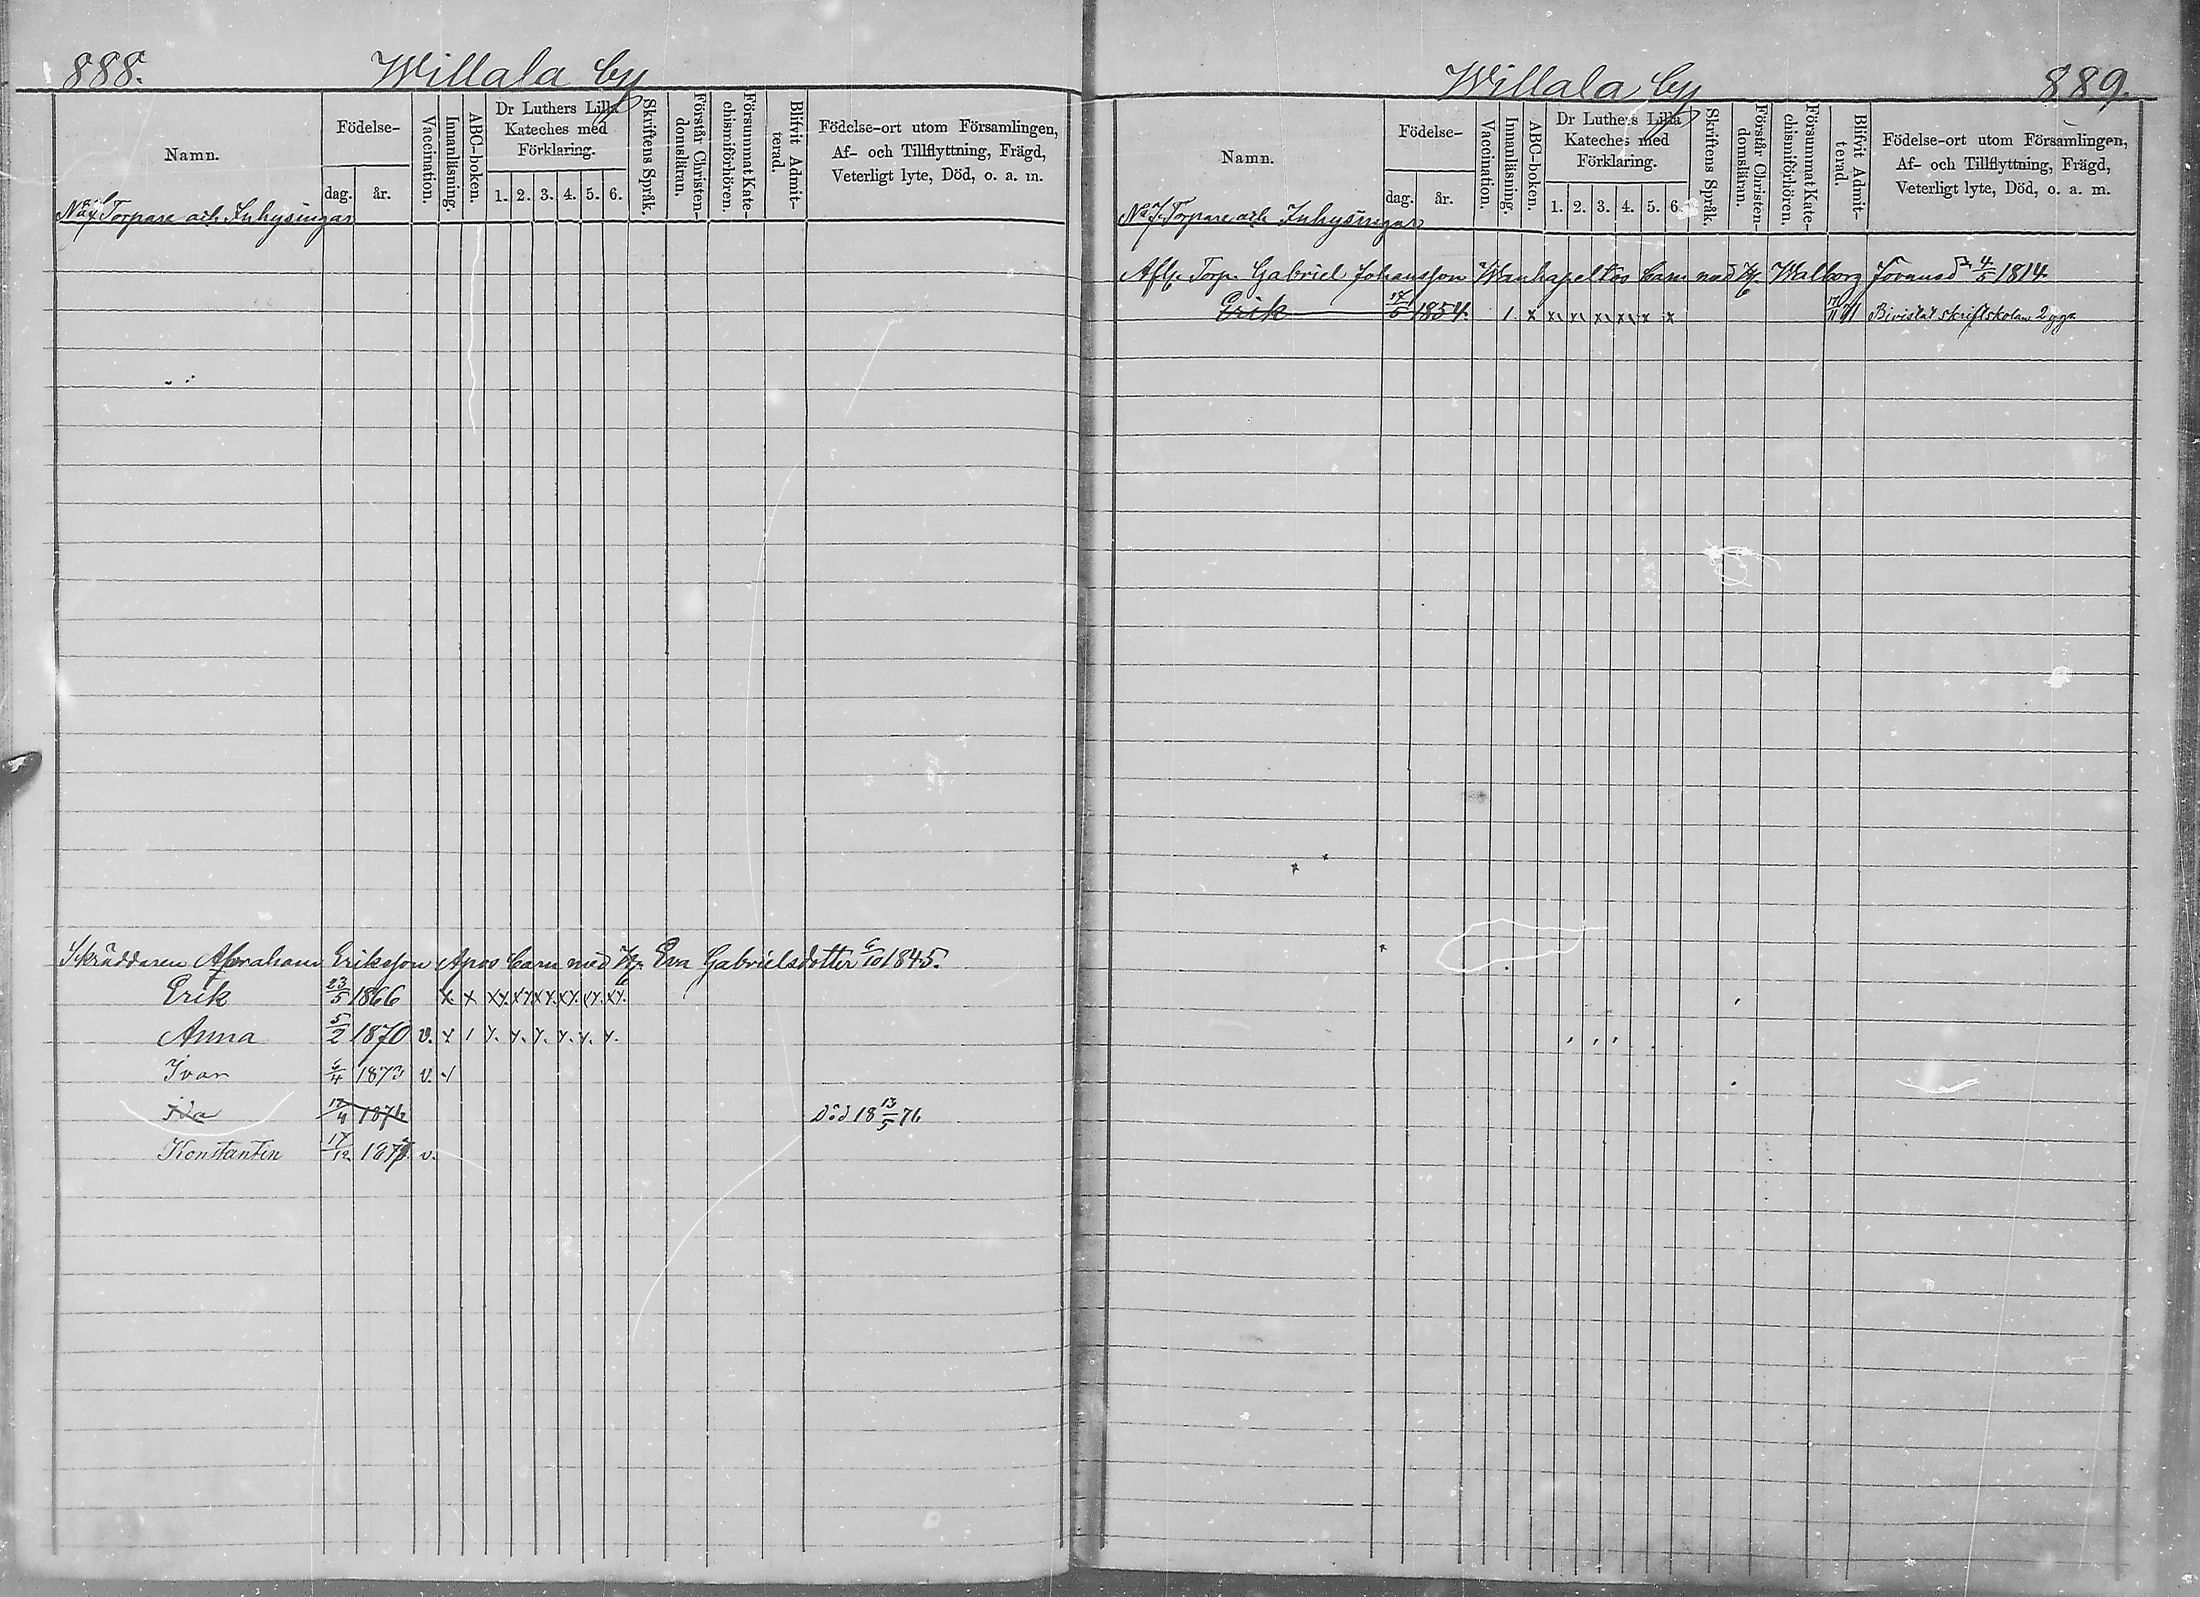 888.
Willala by
Namn.
Födelse-
dag.
år.
Vaccination.
Innanläsning.
ABC-boken.
Dr Luthers Lilla
Kateches med
Förklaring.
1. 2. 3. 4. 5. 6.
Skriftens Språk.
Förstår Christen-
domsläran.
Försummat Kate-
chismiförhören.
Blifvit Admit-
terad.
Födelse-ort utom Församlingen,
Af- och Tillflyttning, Frägd,
Veterligt lyte, Död, o. a. m.
No 7. Torpare och Inhysingar
Skräddaren Abraham Eriksson Apos barn med H. Eva Gabrielsdotter 1845.
Erik 23/5 1866 x x xx xx xx xx xx xx
Anna 5/2 1870 v.
Ivar 1873 v.
Ida 17/4 1876 Död 18 13/5 76
Konstantin 17/12 1877. v.
Willala by
889.
Namn.
Födelse-
dag.
år.
Vaccination.
Innanläsning.
ABC-boken.
Dr Luthers Lilla
Kateches med
Förklaring.
1. 2. 3. 4. 5. 6.
Skriftens Språk.
Förstår Christen-
domsläran.
Försummat Kate-
chismiförhören.
Blifvit Admit-
terad.
Födelse-ort utom Församlingen,
Af- och Tillflyttning, Frägd,
Veterligt lyte, Död, o. a. m.
No 7. Torpare och Inhysingar
Afl. Torp. Gabriel Johansson Wanhapeltos barn med H. Walborg 4/5 1814
Erik 17/5 1854. 1. x x x x x x x 71 Bivistat skriftskolan 2 ggr